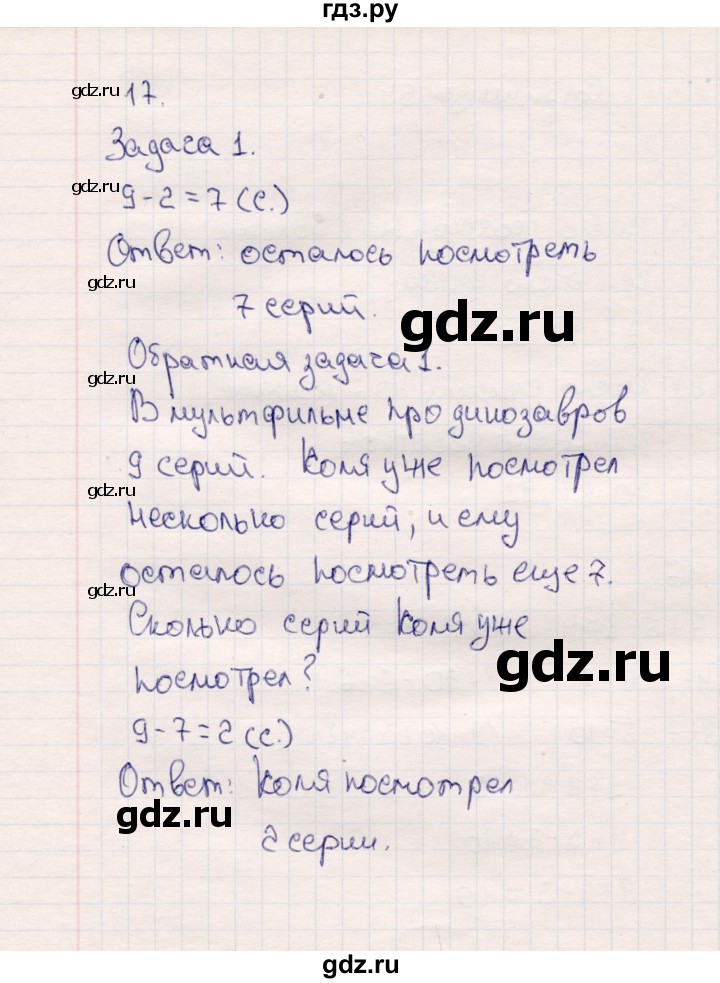 гдз.ру
gdz.ru 17.
Задача 1.
gdz.ru
9-2=7 (с.)
Ответ: осталось посмотреть
gdz.ru
7 серий.
gdz.ru
Обратная задача 1.
gdz.ru
В мультфильме про динозавров
9 серий. Коля уже посмотрел
gdz.ru
несколько серий, и ему
осталось посмотреть еще 7.
gdz.ru
Сколько серий Коля уже
gdz.ru
посмотрел?
9-7=2 (с.)
Ответ: Коля посмотрел
gdz.ru
2 серии.
gdz.ru